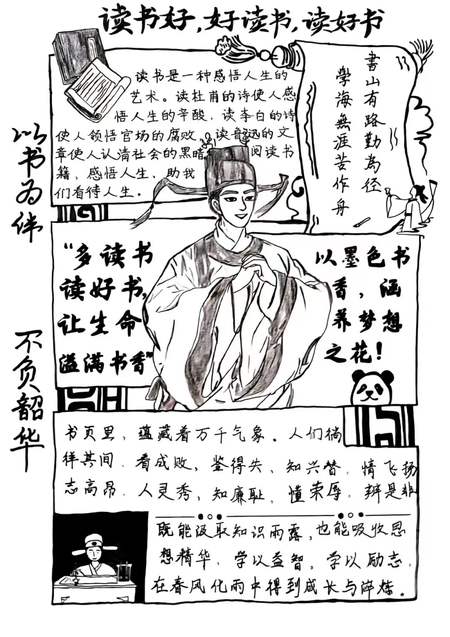 读书好，好读书，读好书
以书为伴
不负韶华
读书是一种感悟人生的
艺术。读杜甫的诗使人感
悟人生的辛酸，读李白的诗
使人领悟官场的腐败，读鲁迅的文
章使人认清社会的黑暗，阅读书
籍，感悟人生，助我
们看待人生。
書山有路勤為径
學海無涯苦作舟
“多读书
读好书，
让生命
溢满书香”
以墨色书
香，涵
养梦想
之花！
书页里，蕴藏着万千气象。人们徜
徉其间，看成败，鉴得失，知兴替，情飞扬
志高昂，人灵秀，知廉耻，懂荣辱，辨是非
既能汲取知识雨露，也能吸收思
想精华，学以益智，学以励志，
在春风化雨中得到成长与淬炼。